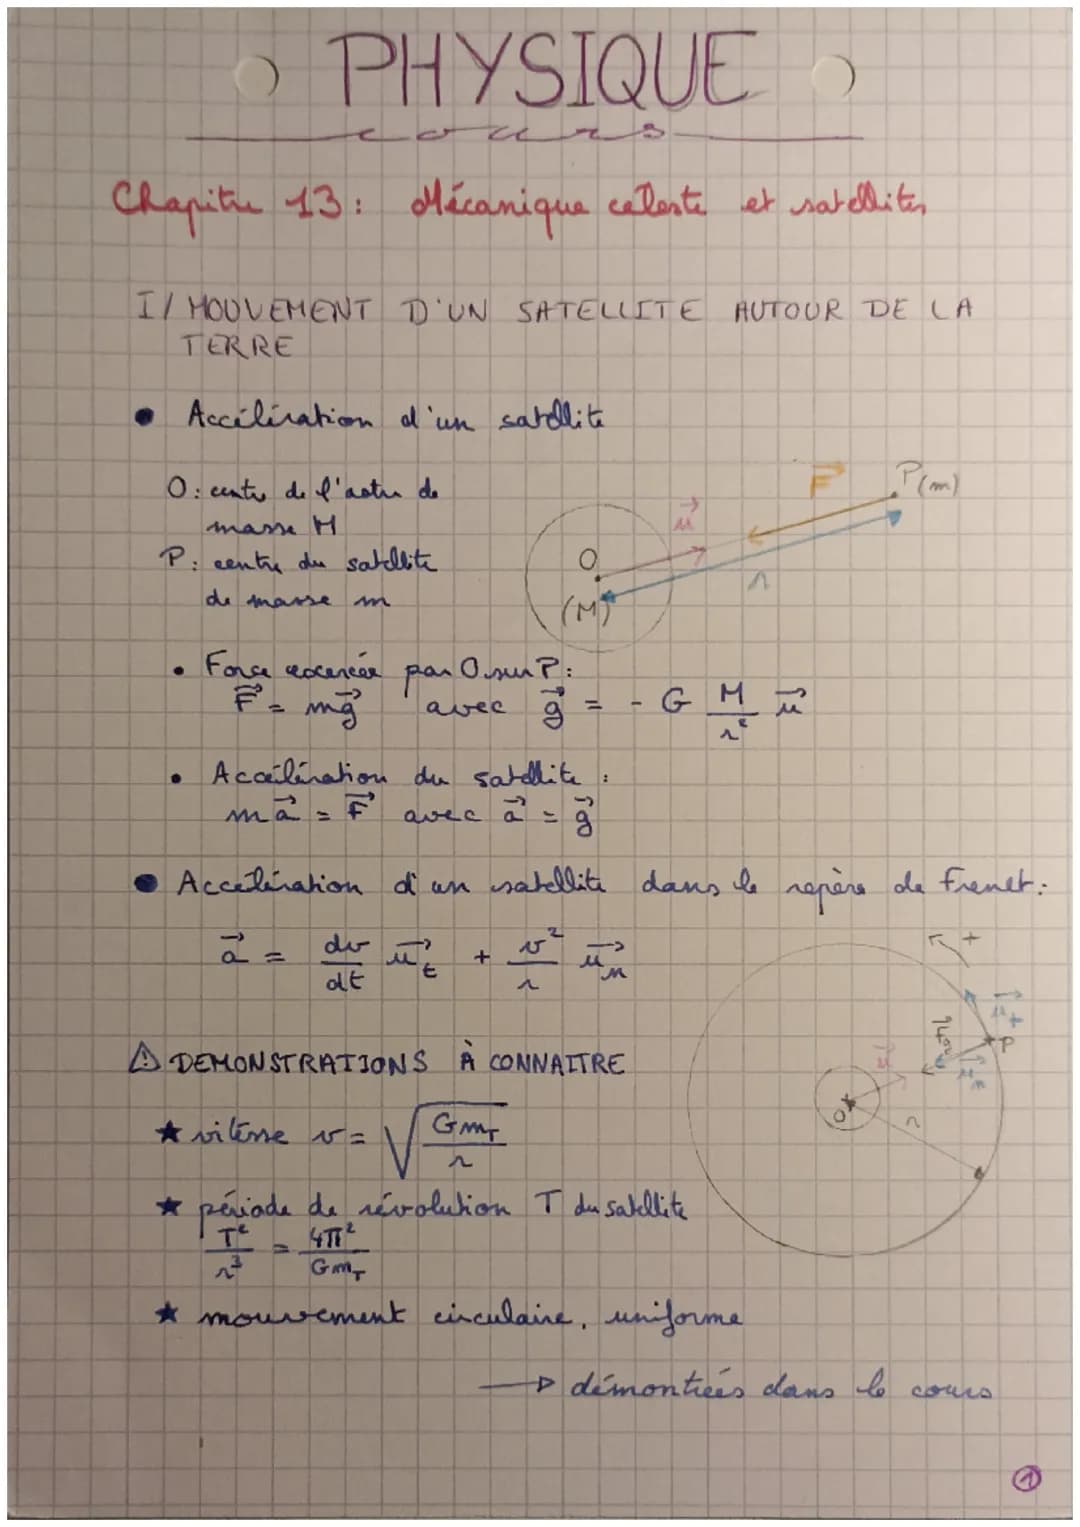 PHYSIQUE
cours
Chapitre 13: Mécanique céleste et satellites
I/ MOUVEMENT D'UN SATELLITE AUTOUR DE LA
TERRE
● Accélération d'un satellite
O: centre de l'astre de
masse M
P: centre du satellite
de masse m
O
(M)
u⃗
F⃗
P(m)
r
• Force exercée par O sur P:
F⃗ = mg⃗ avec g⃗ = - G M/r² u⃗
• Accélération du satellite :
ma⃗ = F⃗ avec a⃗ = g⃗
● Accélération d'un satellite dans le repère de Frenet:
a⃗ = dv/dt u⃗t + v²/r u⃗n
+
u⃗t
P
u⃗n
u⃗
O
r
⚠ DEMONSTRATIONS À CONNAITRE
★ vitesse v = √(GmT/r)
★ période de révolution T du satellite
T²/r³ = 4π²/GmT
★ mouvement circulaire, uniforme
→ démontrées dans le cours
1